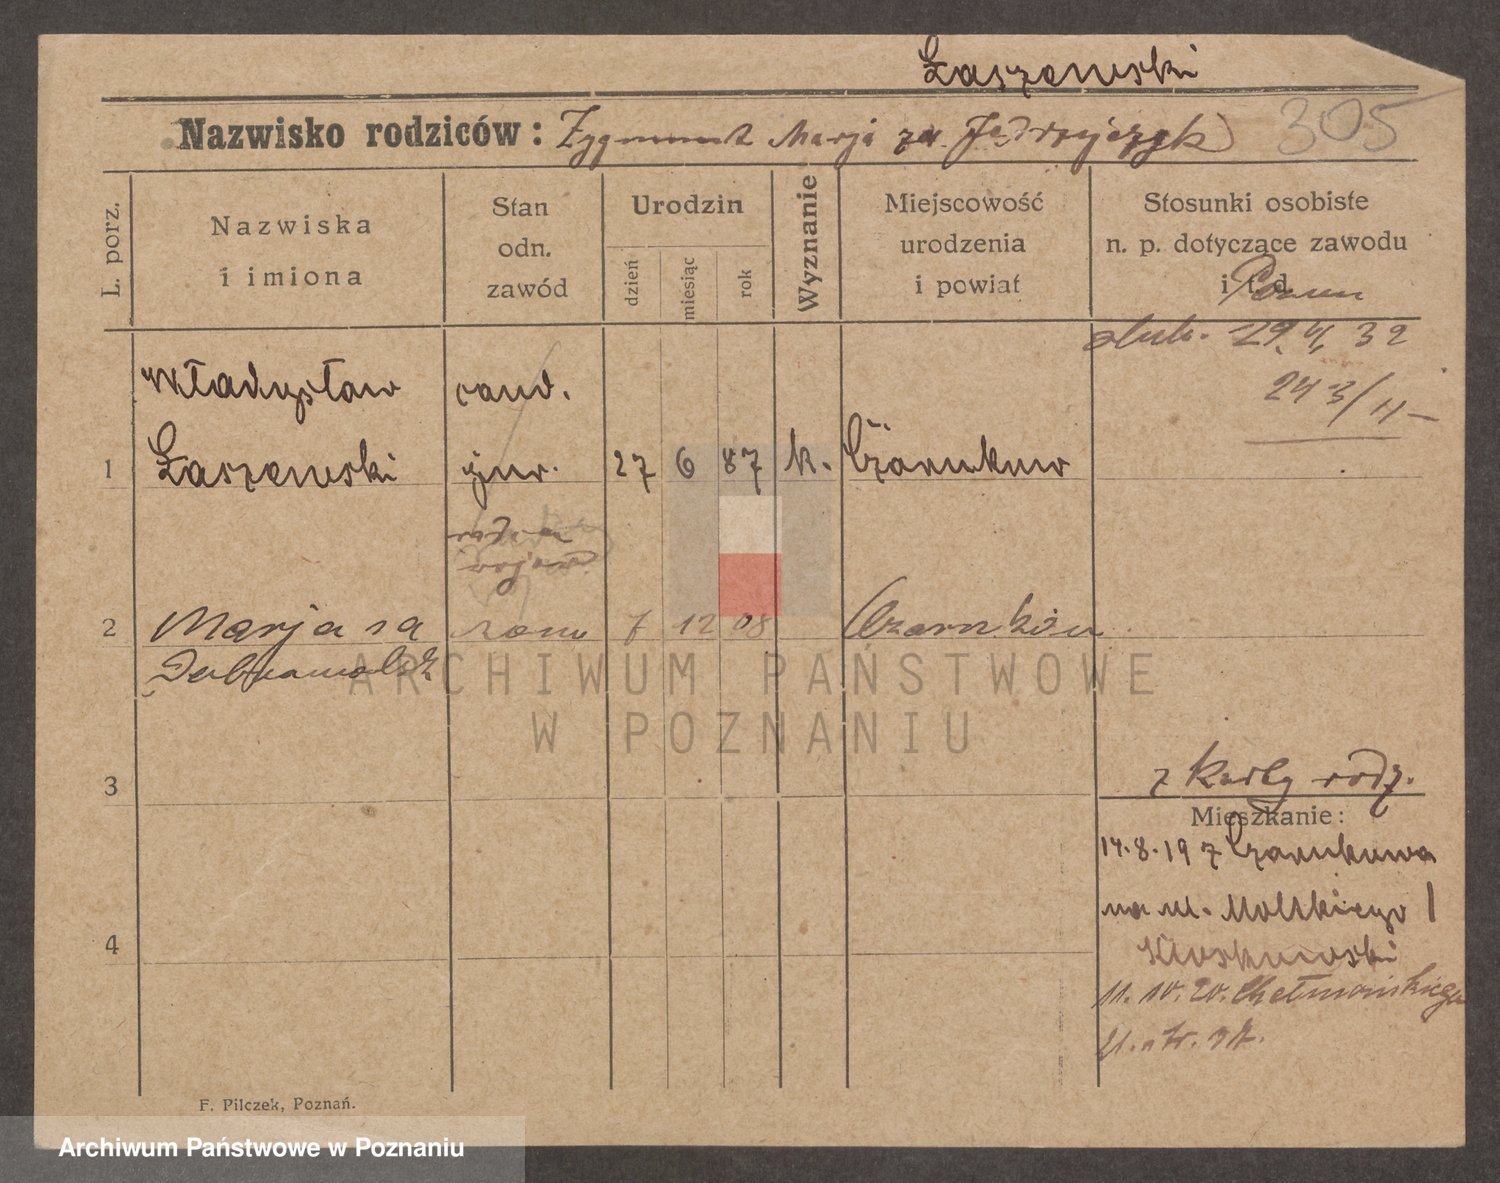 Łaszewski
Nazwisko rodziców: Zygmunt Marja za Jędrzejczyk 305
L. porz.
Nazwiska
i imiona
Stan
odn.
zawód
Urodzin
dzień
miesiąc
rok
Wyznanie
Miejscowość
urodzenia
i powiat
Stosunki osobiste
n. p. dotyczące zawodu
i t. d.
ślub. 29. 4. 32
243/II
1
Władysław
Łaszewski
cand.
jur.
radca
wojew.
27
6
87
k.
Czarnków
2
Marja
7
12
08
Czarnków
3
4
z karty rodz.
Mieszkanie:
14.8.19 z Czarnkowa
na ul. Moltkiego 1
11. 10. 20. Chełmońskiego
21.
F. Pilczek, Poznań.
ARCHIWUM PAŃSTWOWE
W POZNANIU
Archiwum Państwowe w Poznaniu